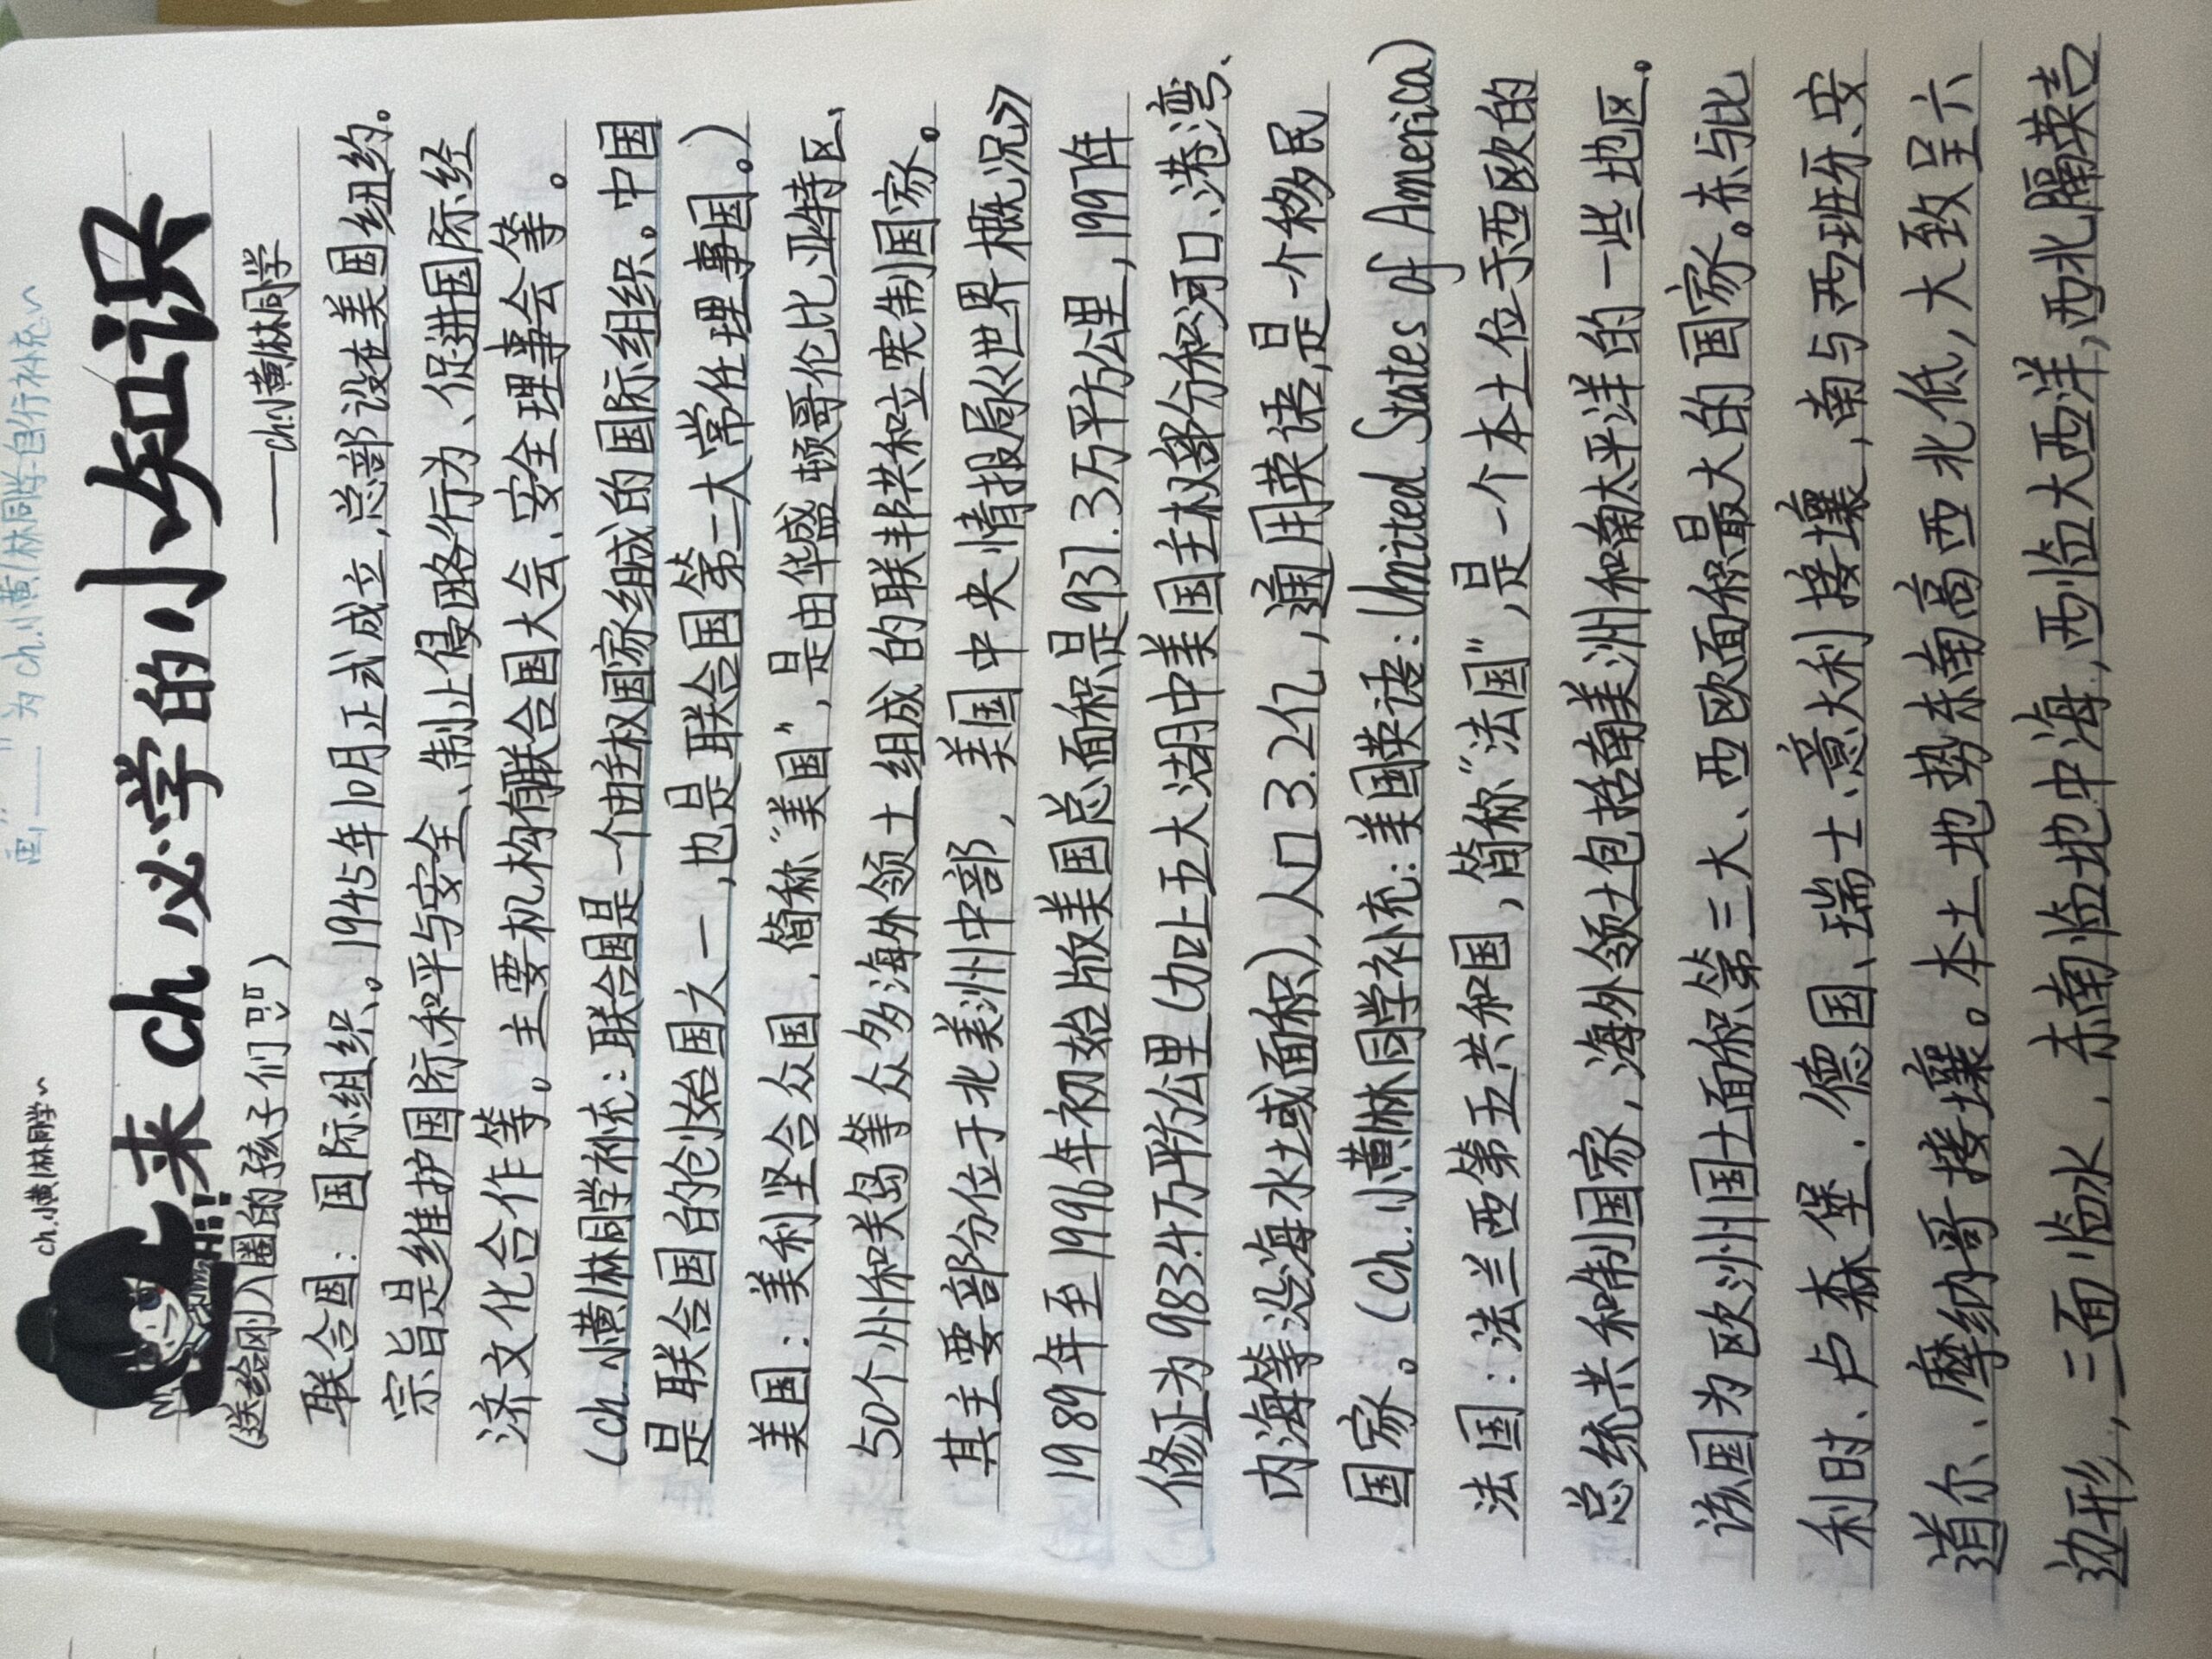 ch.小黄林同学~
画“——”为ch.小黄林同学自行补充~
来ch必学的小知识
Hi!
(送给刚入圈的孩子们)
——ch.小黄林同学
联合国：国际组织。1945年10月正式成立，总部设在美国纽约。
宗旨是维护国际和平与安全、制止侵略行为、促进国际经
济文化合作等。主要机构有联合国大会、安全理事会等。
(ch.小黄林同学补充：联合国是一个由主权国家组成的国际组织。中国
是联合国的创始国之一，也是联合国第二大常任理事国。)
美国：美利坚合众国，简称“美国”，是由华盛顿哥伦比亚特区、
50个州和关岛等众多海外领土组成的联邦共和立宪制国家。
其主要部分位于北美洲中部，美国中央情报局《世界概况》
1989年至1996年初始版美国总面积是937.3万平方公里，1997年
修正为983.4万平方公里(加上五大湖中美国主权部分和河口、港湾、
内海等沿海水域面积)，人口3.2亿，通用英语，是一个移民
国家。(ch.小黄林同学补充：美国英语：United States of America)
法国：法兰西第五共和国，简称“法国”，是一个本土位于西欧的
总统共和制国家，海外领土包括南美洲和南太平洋的一些地区。
该国为欧洲国土面积第三大、西欧面积最大的国家。东与比
利时、卢森堡、德国、瑞士、意大利接壤，南与西班牙、安
道尔、摩纳哥接壤。本土地势东南高西北低，大致呈六
边形，三面临水，东南临地中海，西临大西洋，西北隔英吉